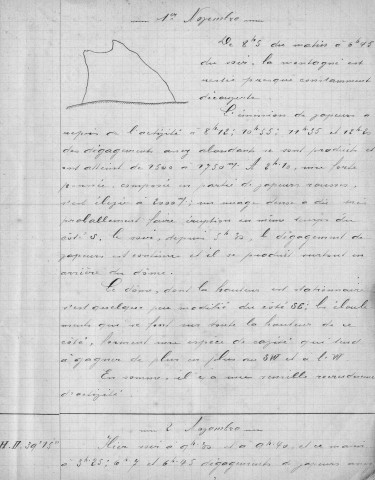 1er Novembre
De 8h5 du matin à 5h45
du soir, la montagne est
restée presque constamment
découverte.
L'émission de vapeurs a
repris de l'activité à 8h12; 10h55; 11h35 et
des dégagements assez abondants se sont produits et
ont atteint de 1500 à 1750m. A 2h10, une forte
poussée, composée en partie de vapeurs rousses,
s'est élevée à 2000m; un nuage dense a dû très
probablement faire éruption en même temps du
côté S. le soir, depuis 5h, le dégagement de
vapeurs est continu et il se produit surtout en
arrière du dôme.
Le dôme, dont la hauteur est stationnaire
s'est quelque peu modifié du côté SE; les éboule-
ments qui se font sur toute la hauteur de ce
côté, forment une espèce de ravin qui tend
à gagner de plus en plus au SW et à l'W
En somme, il y a une nouvelle recrudescence
d'activité
2 Novembre
H.II. 39°15°
Hier soir à 9h et à 9h40, et ce matin
à 5h35; 6h7 et 6h45 dégagements de vapeurs assez